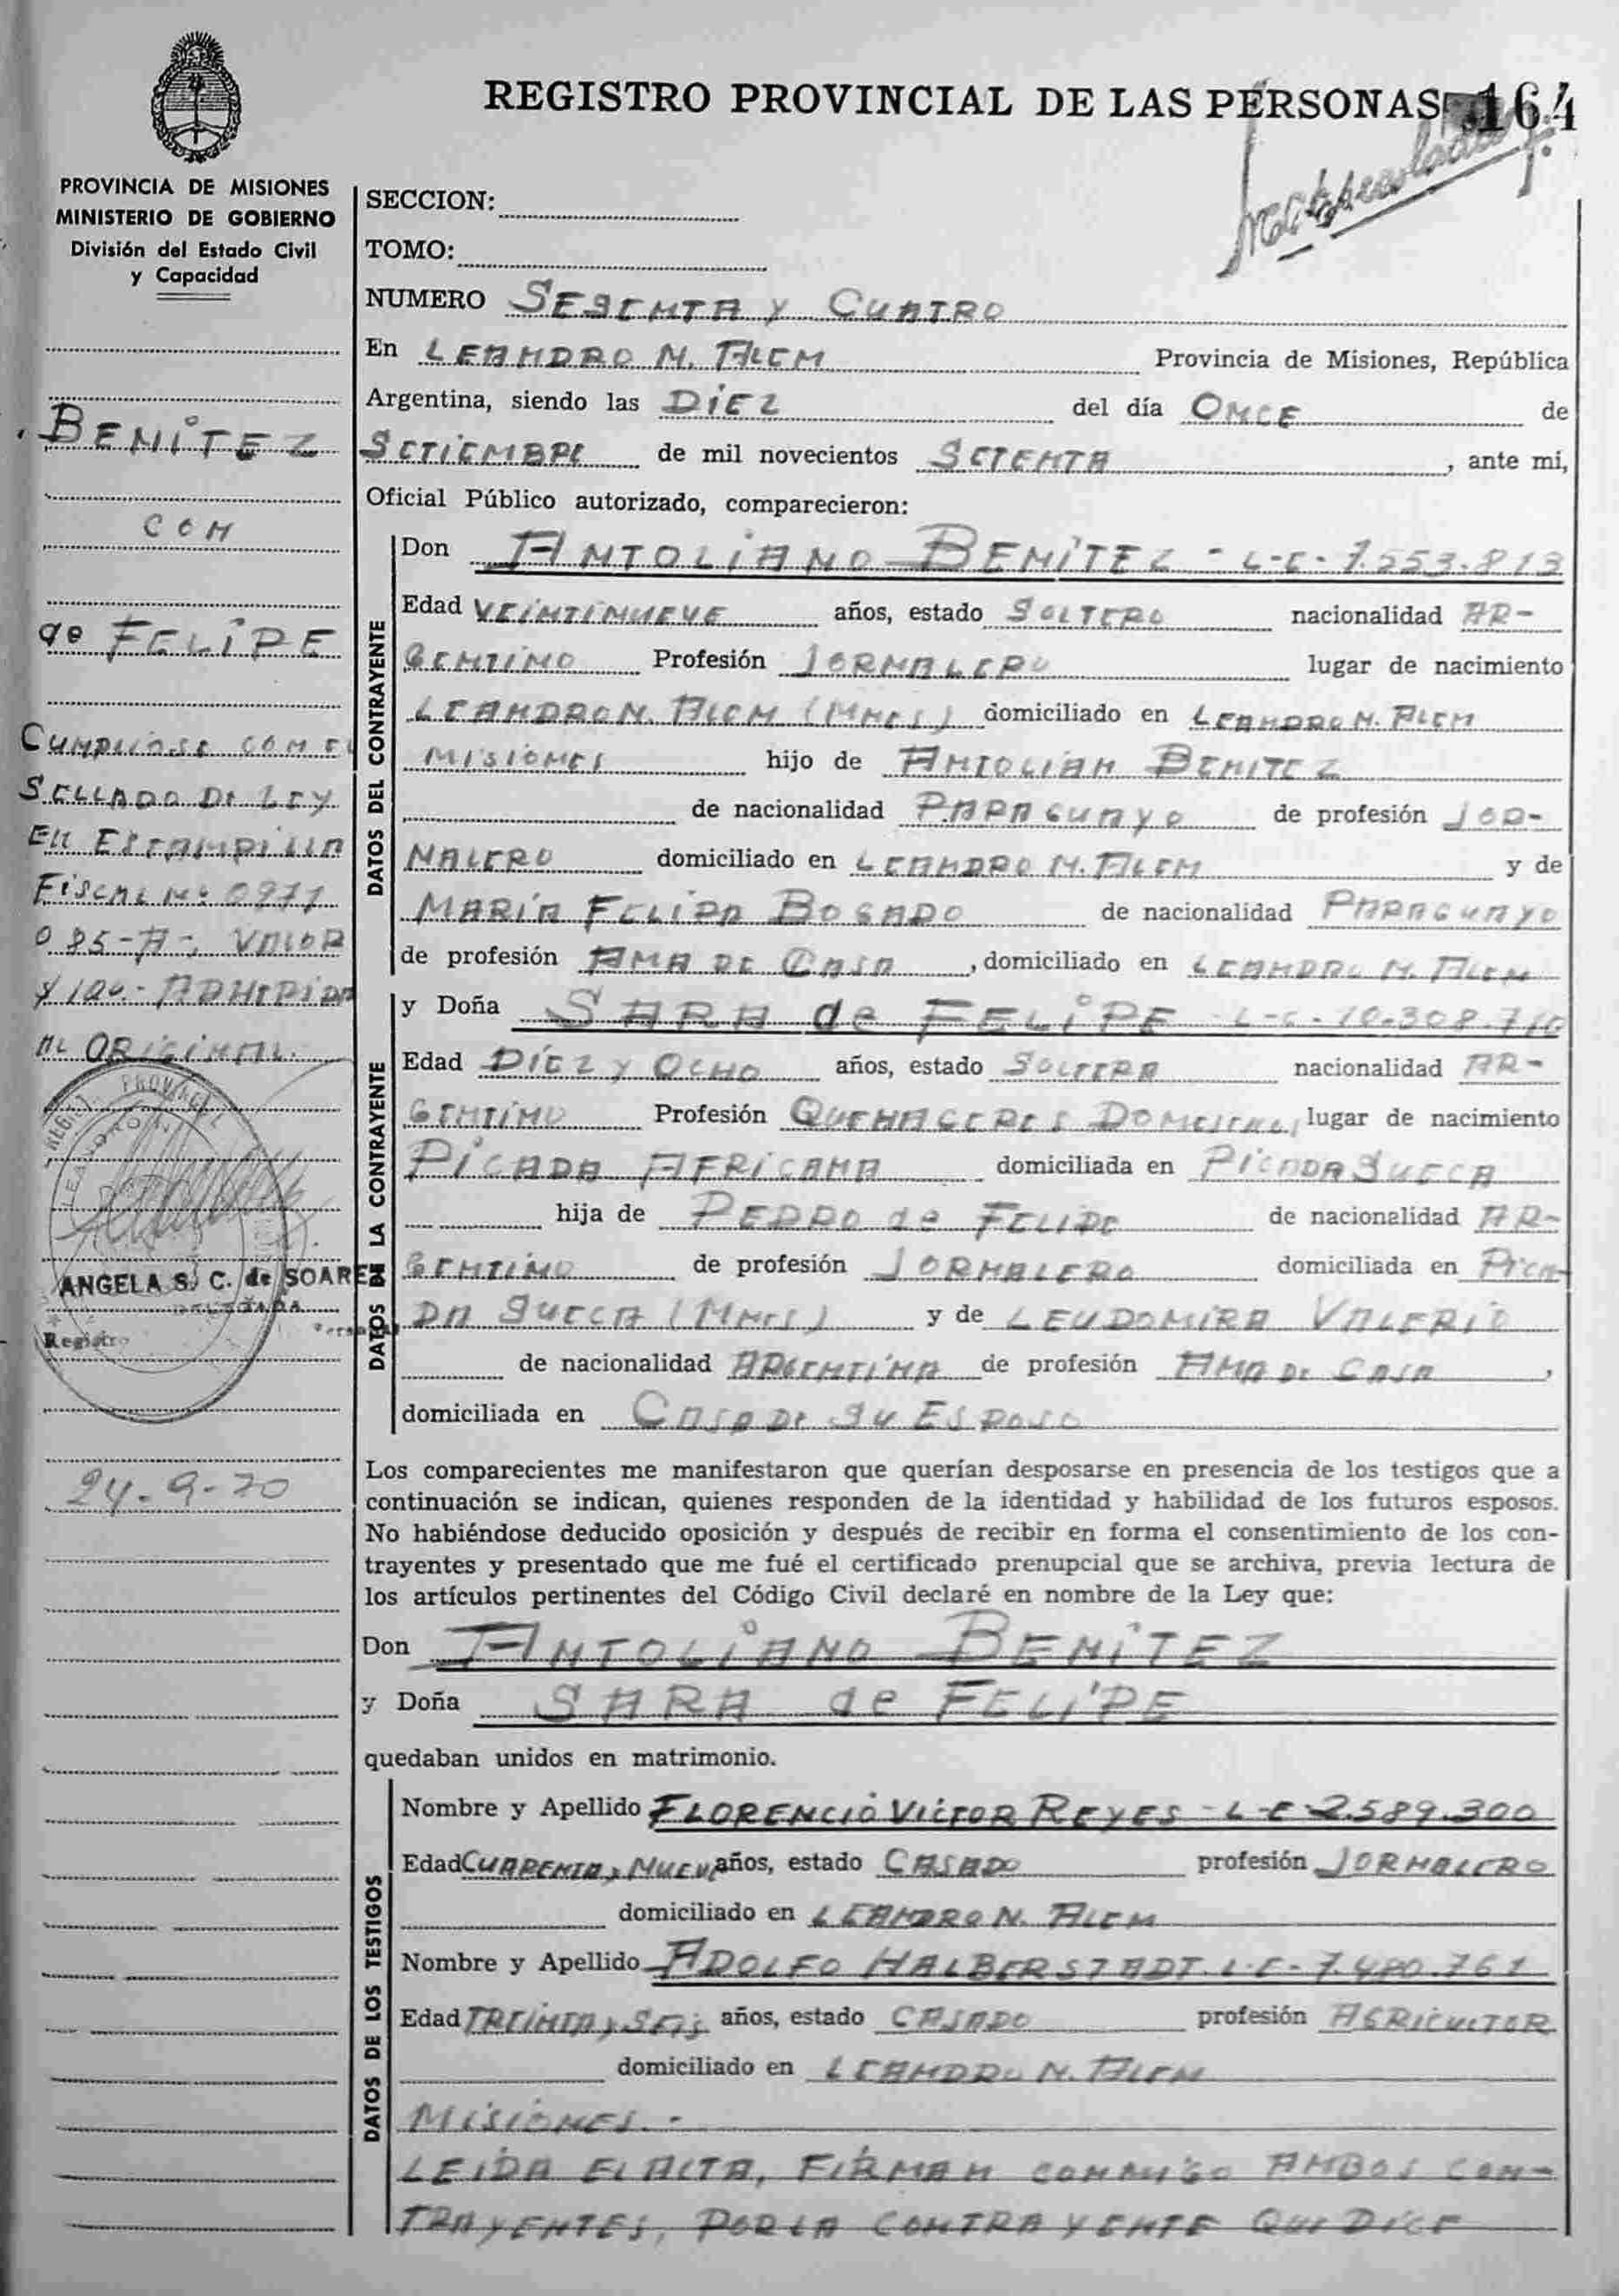 REGISTRO PROVINCIAL DE LAS PERSONAS 164
PROVINCIA DE MISIONES
MINISTERIO DE GOBIERNO
División del Estado Civil
y Capacidad
BENITEZ
CON
de FELIPE
CUMPLIOSE CON EL
SELLADO DE LEY
EN ESTAMPILLA
FISCAL Nº 0971
085-A-, VALOR
$ 100.- ADHERIDA
AL ORIGINAL.
ANGELA S. C. de SOARES
DELEGADA
Registro
24-9-70
SECCION:
TOMO:
NUMERO SESENTA Y CUATRO
En LEANDRO N. ALEM Provincia de Misiones, República
Argentina, siendo las DIEZ del día ONCE de
SETIEMBRE de mil novecientos SETENTA, ante mí,
Oficial Público autorizado, comparecieron:
DATOS DEL CONTRAYENTE
Don ANTOLIANO BENITEZ - L-E- 7.553.813
Edad VEINTINUEVE años, estado SOLTERO nacionalidad AR-
GENTINO Profesión JORNALERO lugar de nacimiento
LEANDRO N. ALEM (Mnes) domiciliado en LEANDRO N. ALEM
MISIONES hijo de ANTOLIAN BENITEZ
de nacionalidad PARAGUAYO de profesión JOR-
NALERO domiciliado en LEANDRO N. ALEM y de
MARÍA FELIPA BOGADO de nacionalidad PARAGUAYO
de profesión AMA DE CASA, domiciliado en LEANDRO N. ALEM
DATOS DE LA CONTRAYENTE
y Doña SARA de FELIPE L-C-10.308.710
Edad DIEZ Y OCHO años, estado SOLTERA nacionalidad AR-
GENTINO Profesión QUEHACERES lugar de nacimiento
PICADA AFRICANA domiciliada en PICADA SUECA
hija de PEDRO de FELIPE de nacionalidad AR-
GENTINO de profesión JORNALERO domiciliada en PICA-
DA SUECA (Mnes) y de LEUDOMIRA VALERIO
de nacionalidad ARGENTINA de profesión AMA DE CASA,
domiciliada en CASA DE SU ESPOSO
Los comparecientes me manifestaron que querían desposarse en presencia de los testigos que a
continuación se indican, quienes responden de la identidad y habilidad de los futuros esposos.
No habiéndose deducido oposición y después de recibir en forma el consentimiento de los con-
trayentes y presentado que me fué el certificado prenupcial que se archiva, previa lectura de
los artículos pertinentes del Código Civil declaré en nombre de la Ley que:
Don ANTOLIANO BENITEZ
y Doña SARA de FELIPE
quedaban unidos en matrimonio.
DATOS DE LOS TESTIGOS
Nombre y Apellido FLORENCIO VICTOR REYES - L-E-2.589.300
Edad CUARENTA y NUEVE años, estado CASADO profesión JORNALERO
domiciliado en LEANDRO N. ALEM
Nombre y Apellido ADOLFO HALBERSTADT. L.E- 7.480.761
Edad TREINTA y SEIS años, estado CASADO profesión AGRICULTOR
domiciliado en LEANDRO N. ALEM
MISIONES.-
LEIDA EL ACTA, FIRMAN CONMIGO AMBOS CON-
TRAYENTES, POR LA CONTRAYENTE QUE DICE